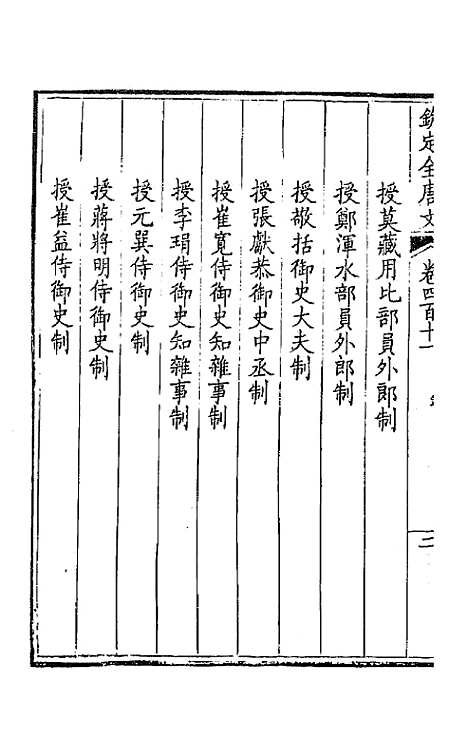 欽定全唐文 卷四百十一 二
授莫藏用比部員外郎制
授鄭渾水部員外郎制
授敬括御史大夫制
授張獻恭御史中丞制
授崔寬侍御史知雜事制
授李琄侍御史知雜事制
授元巽侍御史制
授蔣將明侍御史制
授崔益侍御史制